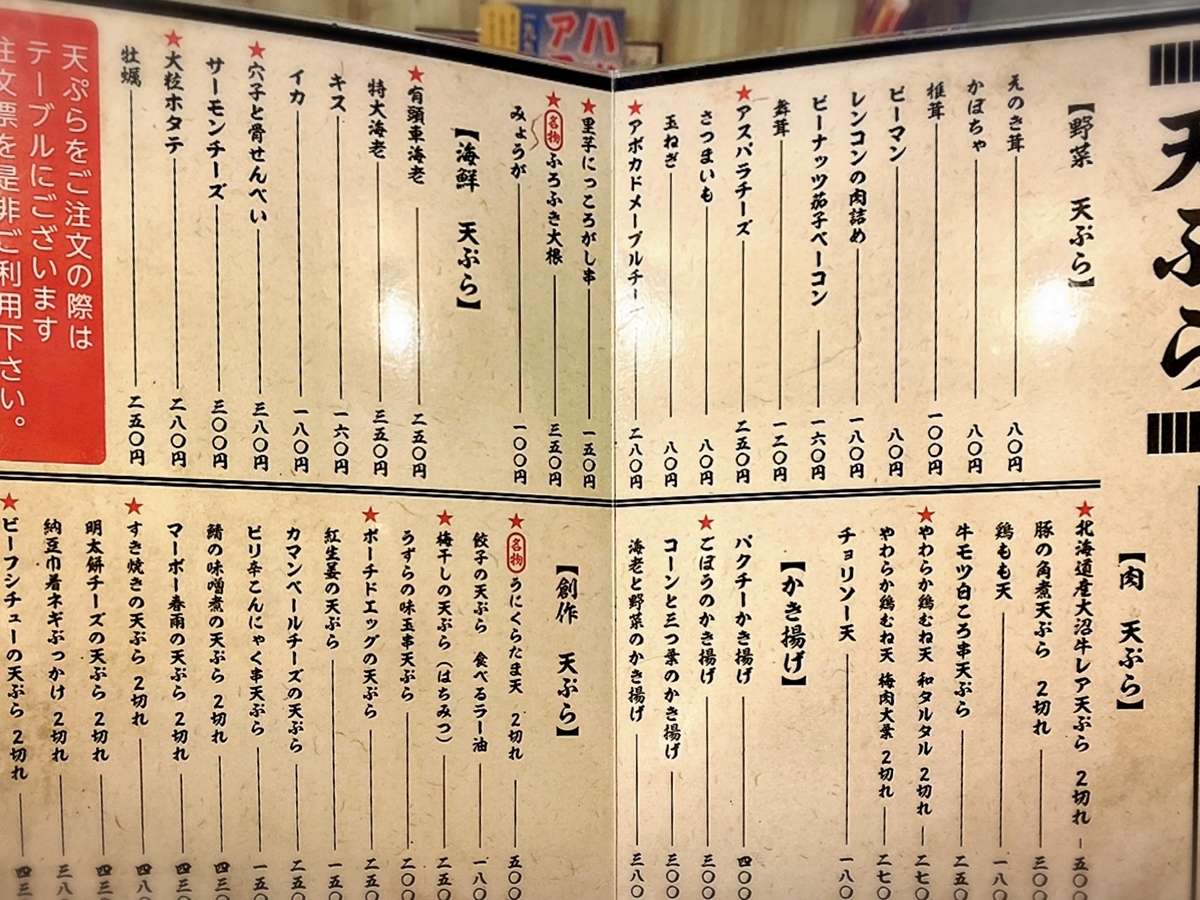 天ぷら
【野菜 天ぷら】
えのき茸 八〇円
かぼちゃ 八〇円
椎茸 一〇〇円
ピーマン 八〇円
レンコンの肉詰め 一八〇円
ピーナッツ茄子ベーコン 一六〇円
舞茸 一二〇円
★アスパラチーズ 二五〇円
さつまいも 八〇円
玉ねぎ 八〇円
★アボカドメープルチー 二八〇円
★里芋にっころがし串 一五〇円
★名物 ふろふき大根 三五〇円
みょうが 一〇〇円
【海鮮 天ぷら】
★有頭車海老 二五〇円
特大海老 三五〇円
キス 一六〇円
イカ 一八〇円
★穴子と骨せんべい 三八〇円
サーモンチーズ 三〇〇円
★大粒ホタテ 二八〇円
牡蠣 二五〇円
天ぷらをご注文の際は
テーブルにございます
注文票を是非ご利用下さい。
【肉 天ぷら】
★北海道産大沼牛レア天ぷら 2切れ 五〇〇
豚の角煮天ぷら 2切れ 三〇〇
鶏もも天 一八〇
牛モツ白ころ串天ぷら 二五〇
★やわらか鶏むね天 和タルタル 2切れ 二七〇
やわらか鶏むね天 梅肉大葉 2切れ 二七〇
チョリソー天 一八〇
【かき揚げ】
パクチーかき揚げ 四〇〇
★ごぼうのかき揚げ 三〇〇
コーンと三つ葉のかき揚げ 三〇〇
海老と野菜のかき揚げ 三八〇
【創作 天ぷら】
★名物 うにくらたま天 2切れ 五〇〇
餃子の天ぷら 食べるラー油 一八〇
★梅干しの天ぷら(はちみつ) 二五〇
うずらの味玉串天ぷら 二〇〇
★ポーチドエッグの天ぷら 二五〇
紅生姜の天ぷら 一五〇
カマンベールチーズの天ぷら 二五〇
ピリ辛こんにゃく串天ぷら 一五〇
鯖の味噌煮の天ぷら 2切れ 四三〇
マーボー春雨の天ぷら 2切れ 四三〇
★すき焼きの天ぷら 2切れ 四八〇
明太餅チーズの天ぷら 2切れ 四三〇
納豆巾着ネギぶっかけ 2切れ 三八〇
★ビーフシチューの天ぷら 2切れ 四三〇